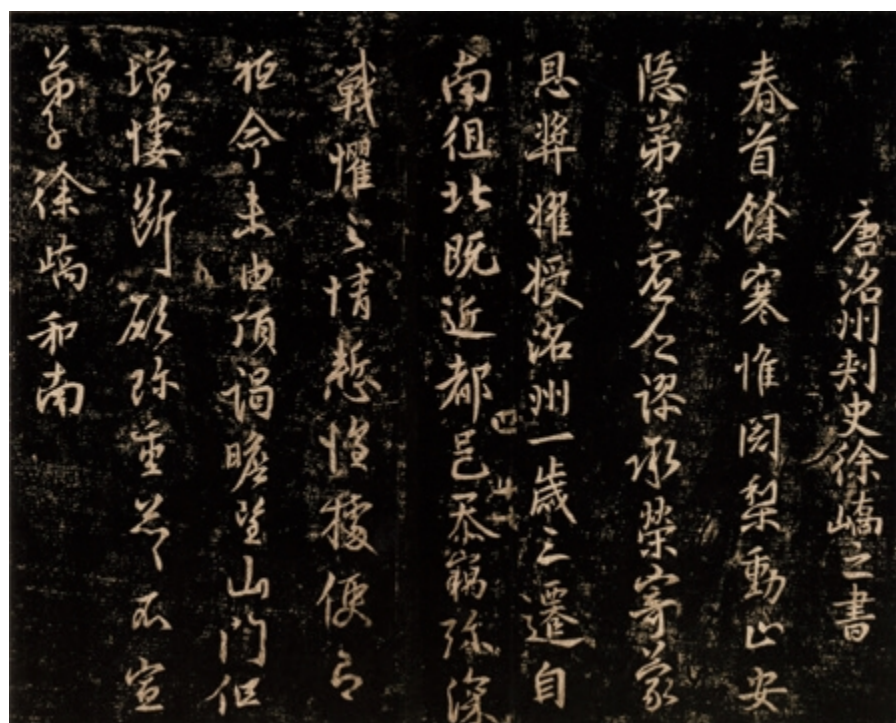 唐洺州刺史徐嶠之書
春首餘寒惟闍梨動止安
隱弟子虛乏謬承榮寄蒙
恩獎擢授洺州一歲三遷自
南徂北既近都邑忝竊弥深
戰懼之情慙惶據便
祗命未由頂謁瞻望山門但
增悽斷願珎重不宣
弟子徐嶠和南